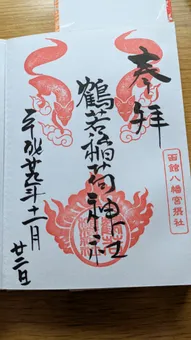 奉拝
鶴若稲荷神社
平成廿九年十一月
廿二日
函館八幡宮末社